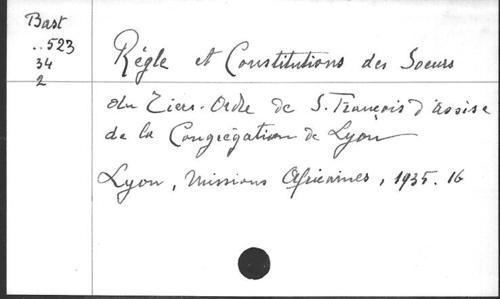 Bast
..523
34
2
Règle et Constitutions des Soeurs
du Tiers-Ordre de S. François d'Assise
de la Congrégation de Lyon
Lyon, Missions Africaines, 1935. 16